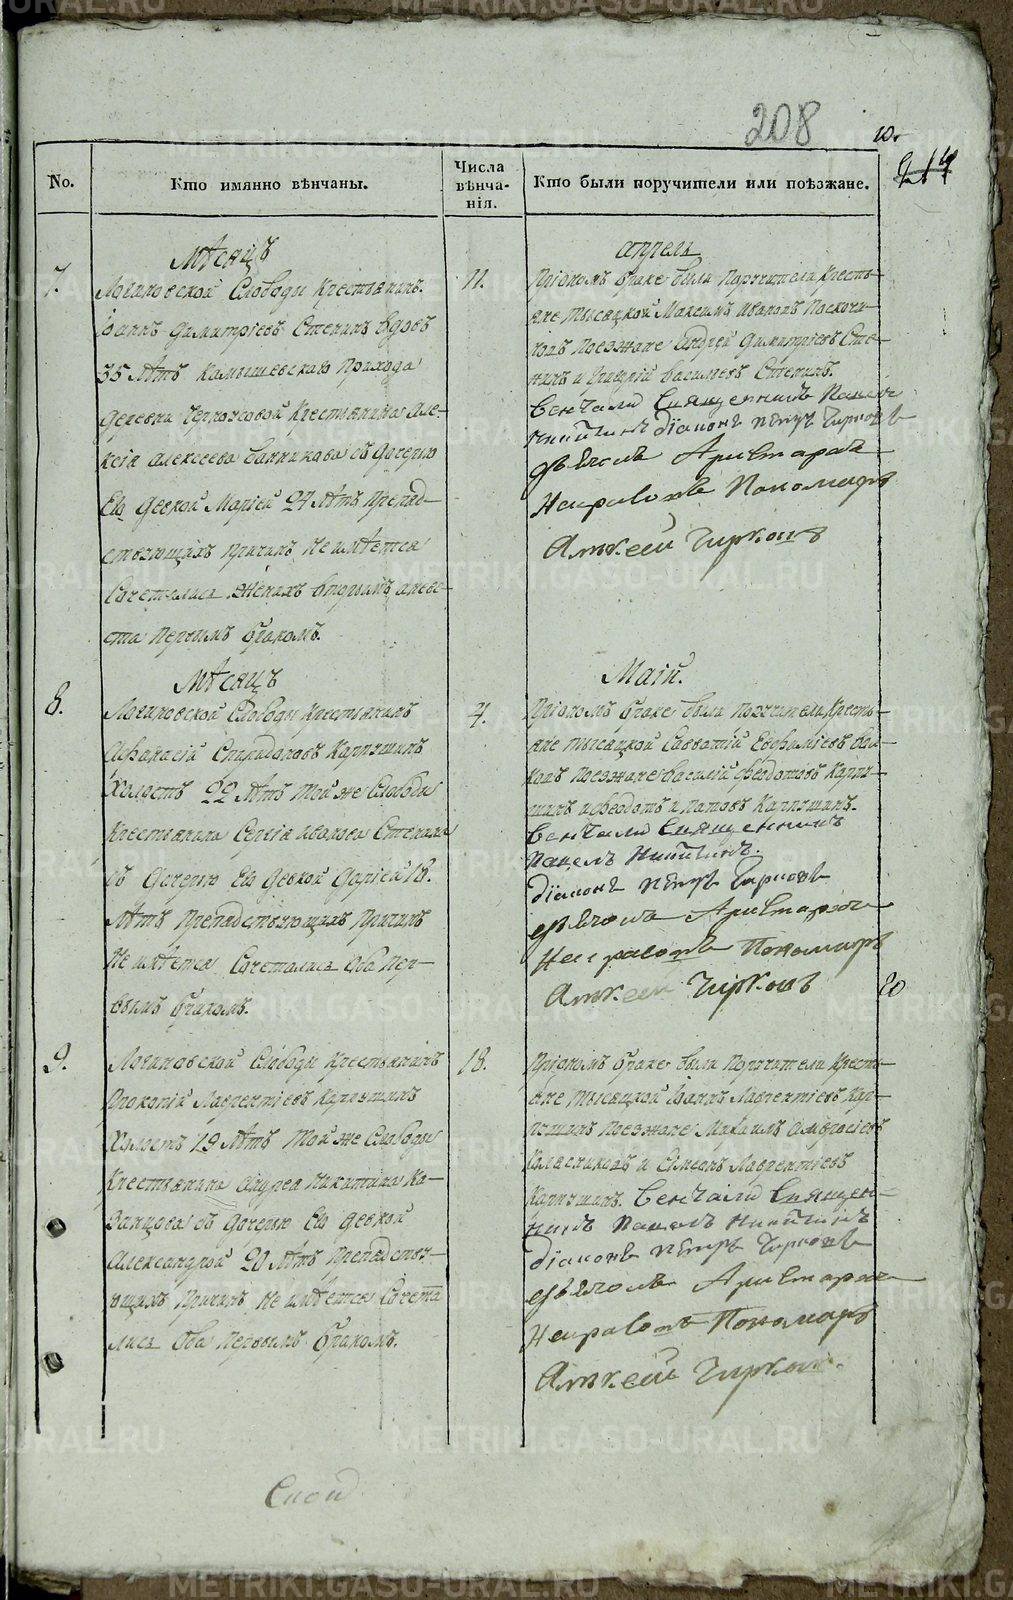 208
10.
214
No.
Кто имянно вѣнчаны.
Числа вѣнча-нія.
Кто были поручители или поѣзжане.
Мѣсяцъ
апрель
7.
Логиновской Слободы Крестьянинъ
Іоаннъ Димитріевъ Степинъ вдовъ
35 лѣтъ Камышевскаго прихода
деревни Черноусовой Крестьянина Але-
ксія Алексеева Банникова съ дочерью
Ею девкой Маріей 27 лѣтъ Препяд-
ствующихъ причинъ не имѣется
Сочетались женихъ вторымъ а неве-
ста первымъ бракомъ.
11.
При ономъ браке были Поручители Кресть-
яне тысяцкой Максимъ Ивановъ
Поезжане Андрей Димитріевъ Сте-
пинъ и Григорій Васильевъ Степинъ.
Венчали Священникъ Павелъ
Никитинъ діаконъ Петръ Чирковъ
дьячокъ Аристархъ
Пономарь
Алексей Чирковъ
Мѣсяцъ
Маій.
8.
Логиновской Слободы Крестьянинъ
Афанасій Спиридоновъ Карпушинъ
Холостъ 22 лѣтъ той же Слободы
Крестьянина Сергія Иванова Степина
съ дочерью Ею девкой Даріей 18.
лѣтъ Препядствующихъ причинъ
Не имѣется Сочетались Оба пер-
вымъ бракомъ.
4.
При ономъ браке были Поручители Кресть-
яне тысяцкой Савватій Евфиміевъ
Поезжане Василій Феодотовъ Карпу-
шинъ и Феодотъ Ипатовъ Карпушинъ.
Венчали Священникъ
Павелъ Никитинъ.
діаконъ Петръ Чирковъ
дьячокъ Аристархъ
Пономарь
Алексей Чирковъ
20
9.
Логиновской Слободы Крестьянинъ
Прокопій Лаврентіевъ Карпушинъ
Холостъ 19 лѣтъ той же Слободы
Крестьянина Андрея Никитина Ка-
занцова съ дочерью Ею девкой
Александрой 20 лѣтъ Препядству-
ющихъ причинъ не имѣется Сочета
лись Оба первымъ бракомъ.
18.
При ономъ браке были Поручители Кресть-
яне тысяцкой Іоаннъ Лаврентіевъ Кар-
пушинъ Поезжане Михаилъ Амвросіевъ
Колясниковъ и Симеонъ Лаврентіевъ
Карпушинъ. Венчали Священ-
никъ Павелъ Никитинъ
діаконъ Петръ Чирковъ
дьячокъ Аристархъ
Пономарь
Алексей Чирковъ.
METRIKI.GASO-URAL.RU